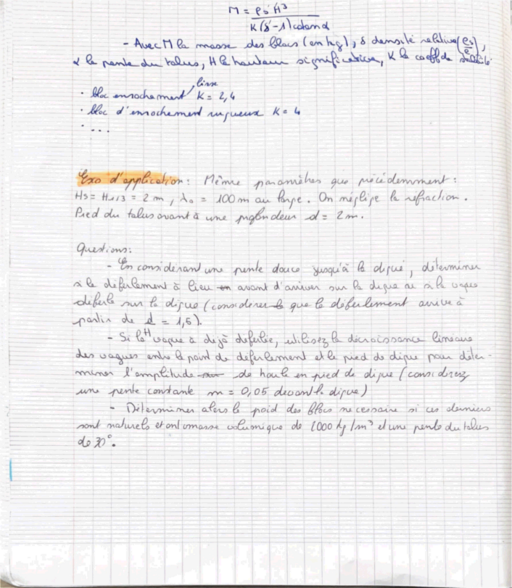 M = ρs H³
K(δ-1)³cotan α
- Avec M la masse des blocs (en kg), δ densité relative (ρs/ρe),
α la pente du talus, H la hauteur significative, K le coeff de stabilité
· bloc enrochement lisse K = 2,4
· bloc d'enrochement rugueux K = 4
· ....
Exo d'application : Même paramètres que précédemment :
Hs = H1/3 = 2 m, λ0 = 100 m au large. On néglige la réfraction.
Pied du talus avant à une profondeur d = 2m.
Questions :
- En considérant une pente douce jusqu'à la digue, déterminer
si le déferlement à lieu avant d'arriver sur la digue ou si la vague
déferle sur la digue (considérer que le déferlement arrive à
partir de d/H = 1,5).
- Si la vague a déjà déferlée, utilisez la décroissance linéaire
des vagues entre le point de déferlement et le pied de digue pour déter-
miner l'amplitude de houle en pied de digue (considérez
une pente constante m = 0,05 devant la digue)
- Déterminer alors le poid des blocs nécessaire si ces derniers
sont naturels et ont masse volumique de 2000 kg/m³ et une pente du talus
de 30°.